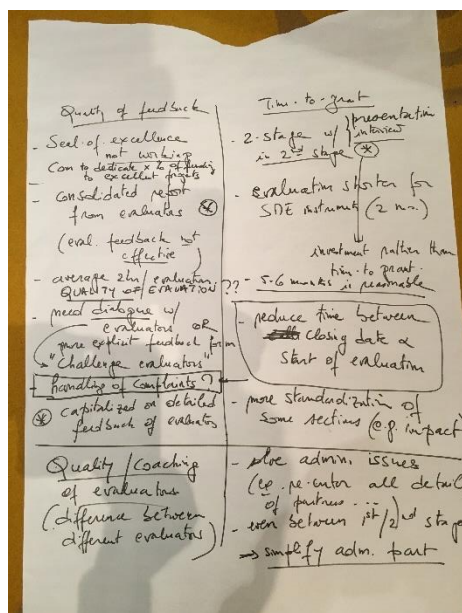 Quality of feedback
- Seal of excellence
not working
Com to dedicate x % of funding
to excellent projects
- consolidated report
from evaluators
(eval. feedback not
effective)
- average 2h/evaluation
QUALITY OF EVALUATION ??
- need dialogue w/
evaluators OR
more explicit feedback form
"challenge evaluators"
- handling of complaints?
* capitalized on detailed
feedback of evaluators
Quality/Coaching
of evaluators
(difference between
different evaluators)
Time-to-grant
- 2-stage w/ presentation
interview
in 2nd stage *
- Evaluation shorter for
SME instrument (2 m.)
investment rather than
time-to-grant.
- 5-6 months is reasonable
- reduce time between
closing date &
start of evaluation
- more standardization of
some sections (e.g. impact)
- solve admin. issues
(eg. re-enter all detail
of partners ...)
- even between 1st/2nd stage
→ simplify adm. part